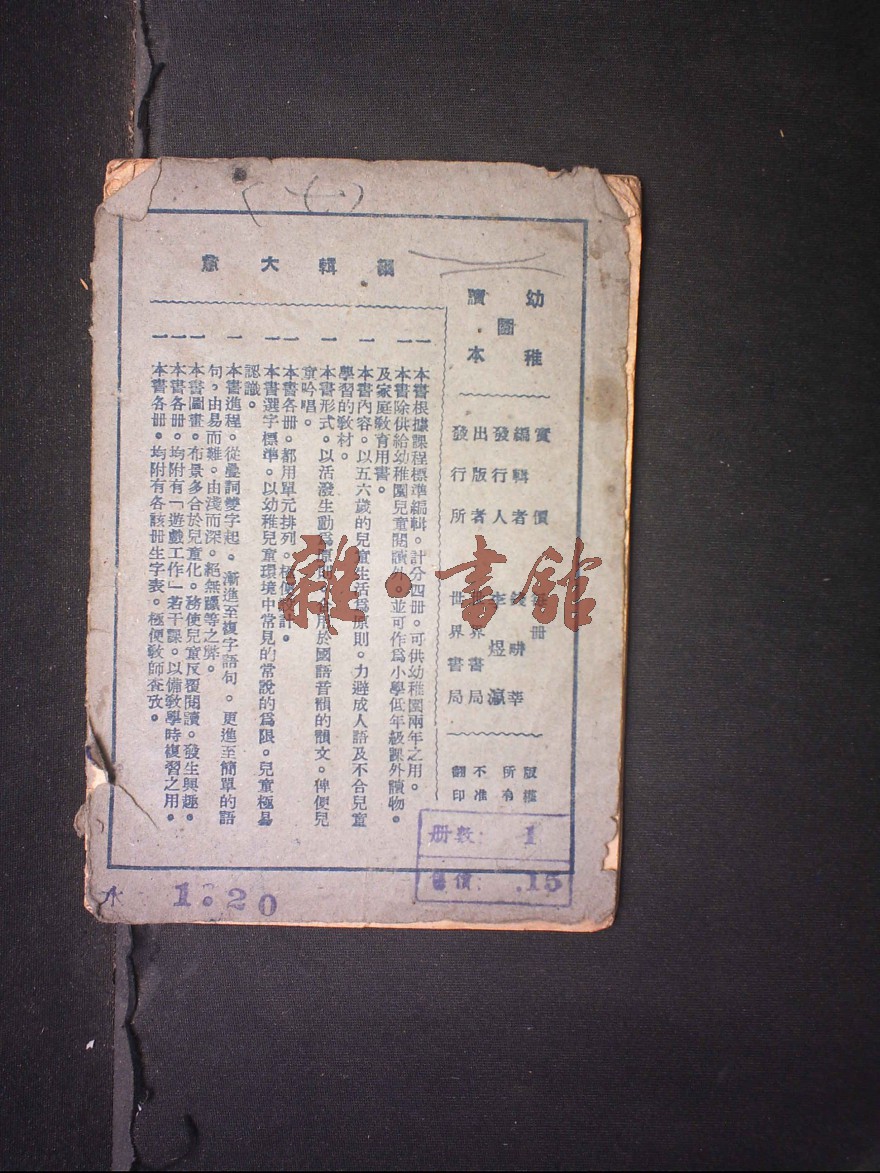 幼稚園讀本
實價 冊
編輯者 錢畊莘
發行人 李煜瀛
出版者 世界書局
發行所 世界書局
版權所有
不准翻印
編輯大意
一 本書根據課程標準編輯。計分四冊。可供幼稚園兩年之用。
一 本書除供給幼稚園兒童閱讀外。並可作爲小學低年級課外讀物。
及家庭教育用書。
一 本書內容。以五六歲的兒童生活爲原則。力避成人語及不合兒童
學習的教材。
一 本書形式。以活潑生動爲原則 用於國語音韻的韻文。俾便兒
童吟唱。
一 本書各冊。都用單元排列。極便設計。
一 本書選字標準。以幼稚兒童環境中常見的常說的爲限。兒童極易
認識。
一 本書進程。從疊詞變字起。漸進至複字語句。更進至簡單的語
句。由易而難。由淺而深。絕無躐等之弊。
一 本書圖畫。布景多合於兒童化。務使兒童反覆閱讀。發生興趣。
一 本書各冊。均附有「遊戲工作」若干課。以備教學時複習之用。
一 本書各冊。均附有各該冊生字表。極便教師查攷。
(七)
冊數: 1
售價: .15
1.20
雜·書館